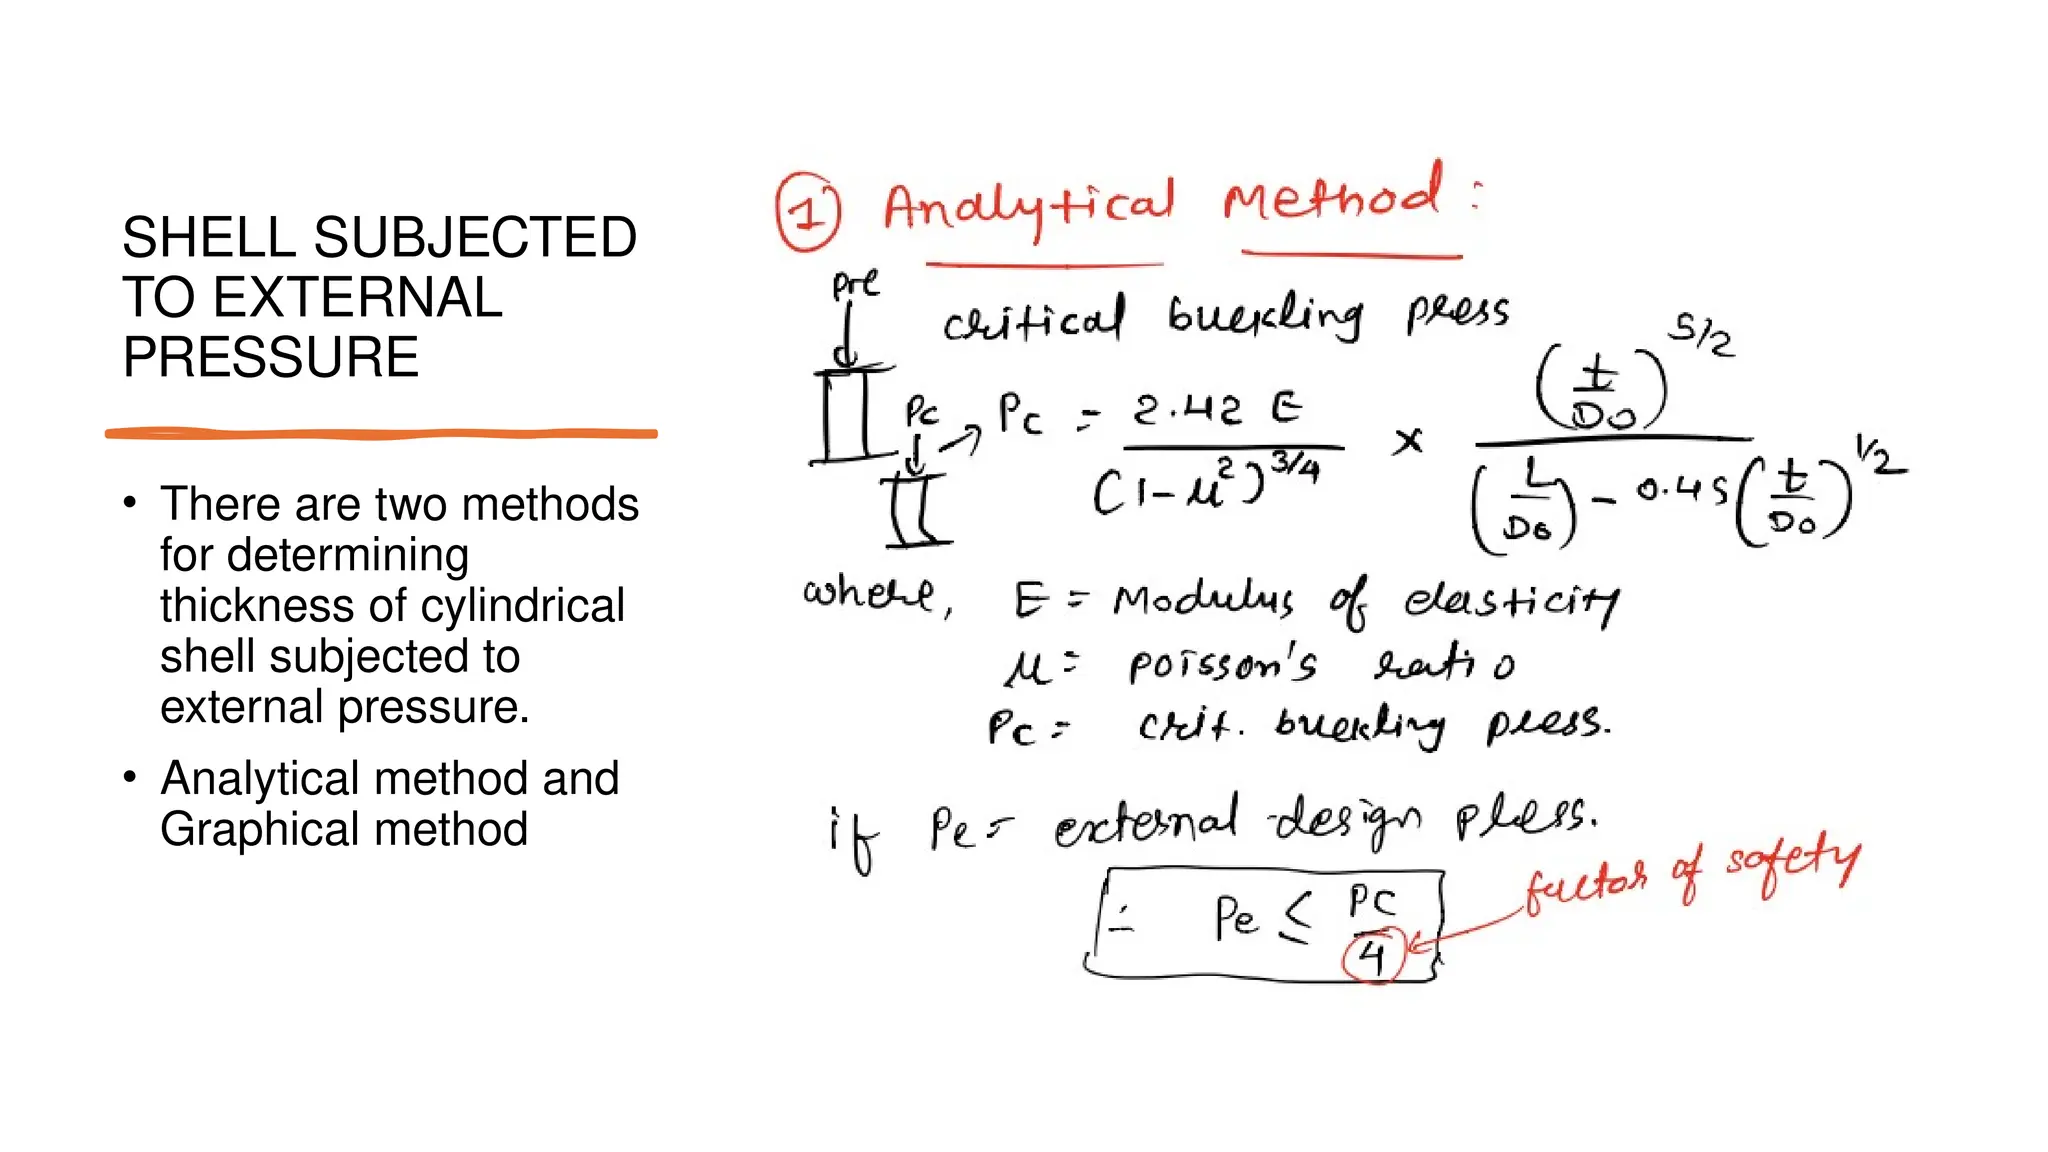 SHELL SUBJECTED
TO EXTERNAL
PRESSURE
• There are two methods
for determining
thickness of cylindrical
shell subjected to
external pressure.
• Analytical method and
Graphical method
1 Analytical Method:
Pre
critical buckling press
Pc → Pc = 2.42 E / (1-μ²)^3/4 × (t/Do)^5/2 / (L/Do) - 0.45 (t/Do)^1/2
where, E = Modulus of elasticity
μ = poisson's ratio
Pc = crit. buckling press.
if Pe = external design press.
∴ Pe ≤ Pc/4
factor of safety